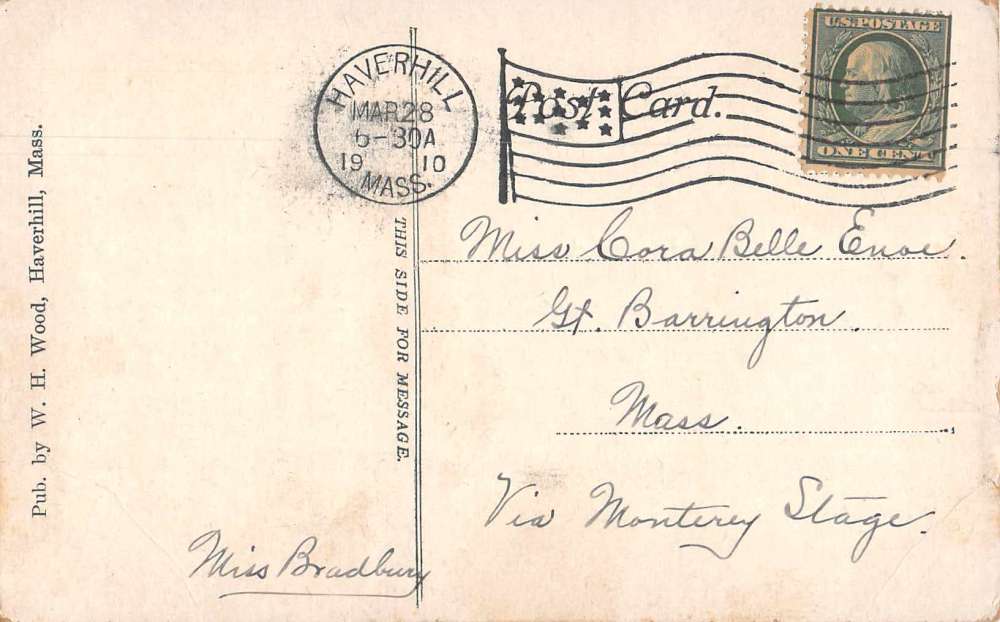 HAVERHILL
MAR 28
6-30A
19 10
MASS.
Post Card.
U.S. POSTAGE
ONE CENT
Pub. by W. H. Wood, Haverhill, Mass.
THIS SIDE FOR MESSAGE.
Miss Cora Belle Enoe.
Gt. Barrington.
Mass.
Via Monterey Stage.
Miss Bradbury